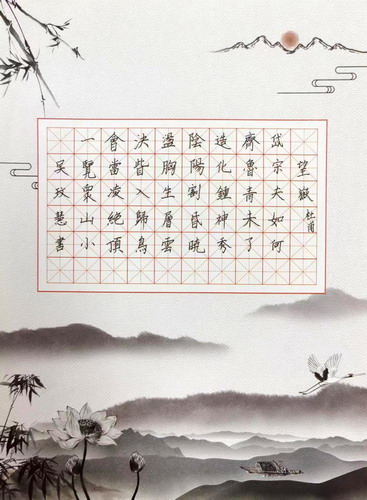 望嶽 杜甫
岱宗夫如何
齊魯青未了
造化鍾神秀
陰陽割昏曉
盪胸生層雲
決眥入歸鳥
會當凌絕頂
一覽衆山小
吴玟慧書